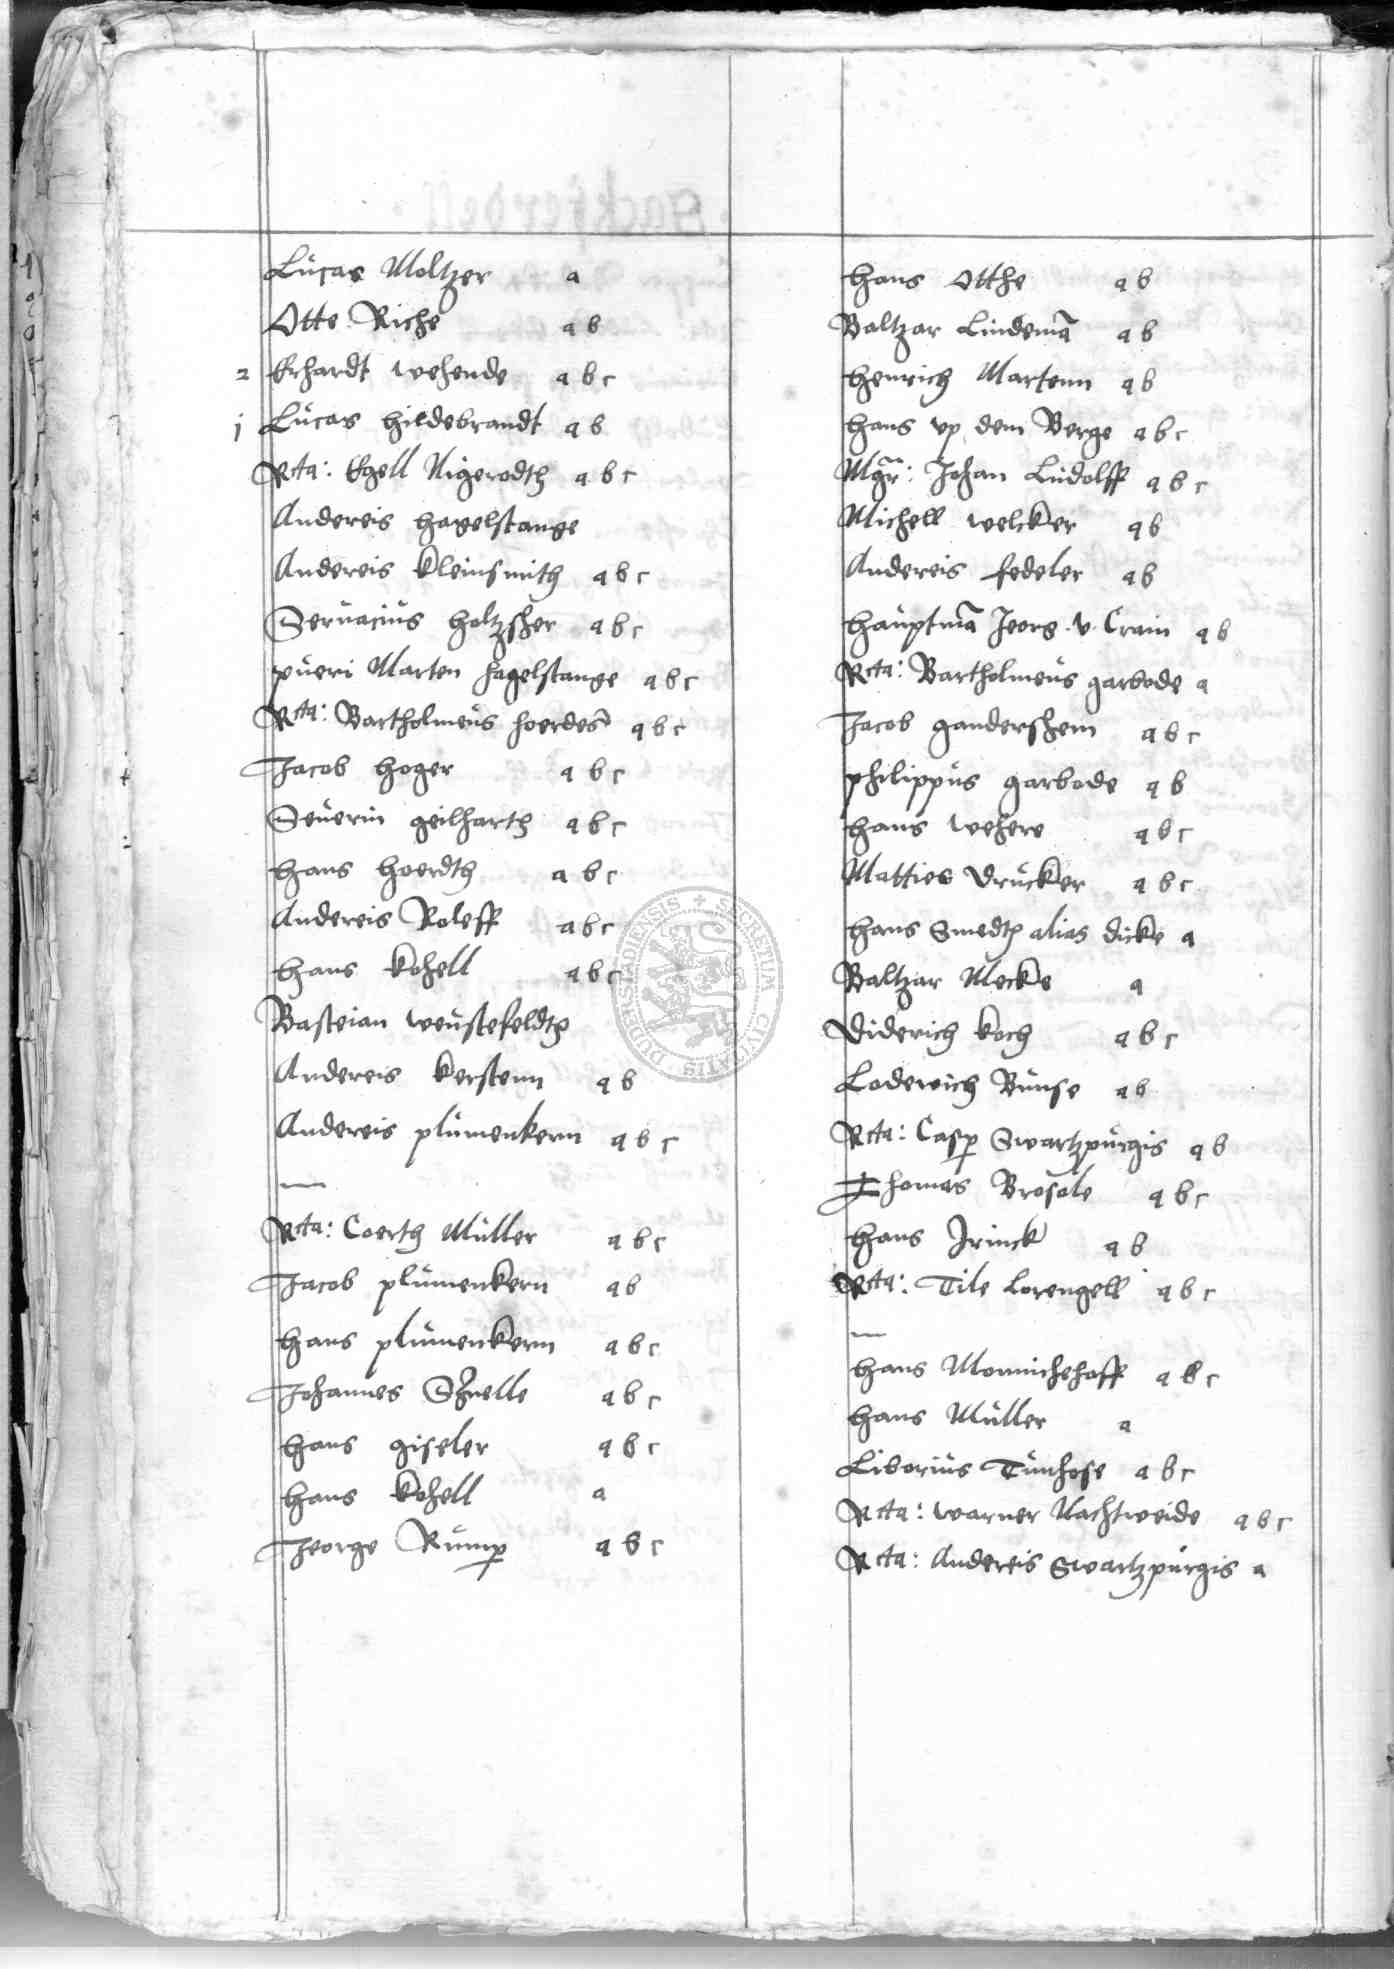 Lucas Moltzer a
Otte Riche a b
2 Erhardt wehende a b c
j Lucas hildebrandt a b
Rcta: Ezell Nigerodth a b c
Andereis hagelstange
Andereis kleinsmith a b c
Seruacius holtzsher a b c
pueri Marten hagelstange a b c
Rcta: Bartholmeus hoerdes a b c
Jacob hoger a b c
Seuerin geilharth a b c
hans hoerdth a b c
Andereis Roleff a b c
hans kohell a b c
Basteian weustefeldth
Andereis kerstenn a b
Andereis plumenkern a b c
—
Rcta: Coerth Müller a b c
Jacob plumenkern a b
hans plumenkern a b c
Johannes Snelle a b c
hans giseler a b c
hans kohell a
Jeorge Rump a b c
hans Otthe a b
Baltzar Lindemā a b
henrich Martenn a b
hans vp dem Berge a b c
Mgr: Johan Ludolff a b c
Michell welcker a b
Andereis fedeler a b
hauptmā Jeorg v. Cram a b
Rcta: Bartholmeus garbode a
Jacob gandershem a b c
philippus garbode a b
hans wehere a b c
Matties Drucker a b c
hans Smedth alias dicke a
Baltzar Mecke a
Diderich koch a b c
Lodewich Bunse a b
Rcta: Casp Swartzpurgis a b
Thomas Brosole a b c
hans Jrinck a b
Rcta: Tile Lorengell a b c
—
hans Monnichehoff a b c
hans Müller a
Liborius Tunhose a b c
Rcta: warner Nachtweide a b c
Rcta: Andereis Swartzpurgis a
SECRETUM CIVITATIS DUDERSTADIENSIS